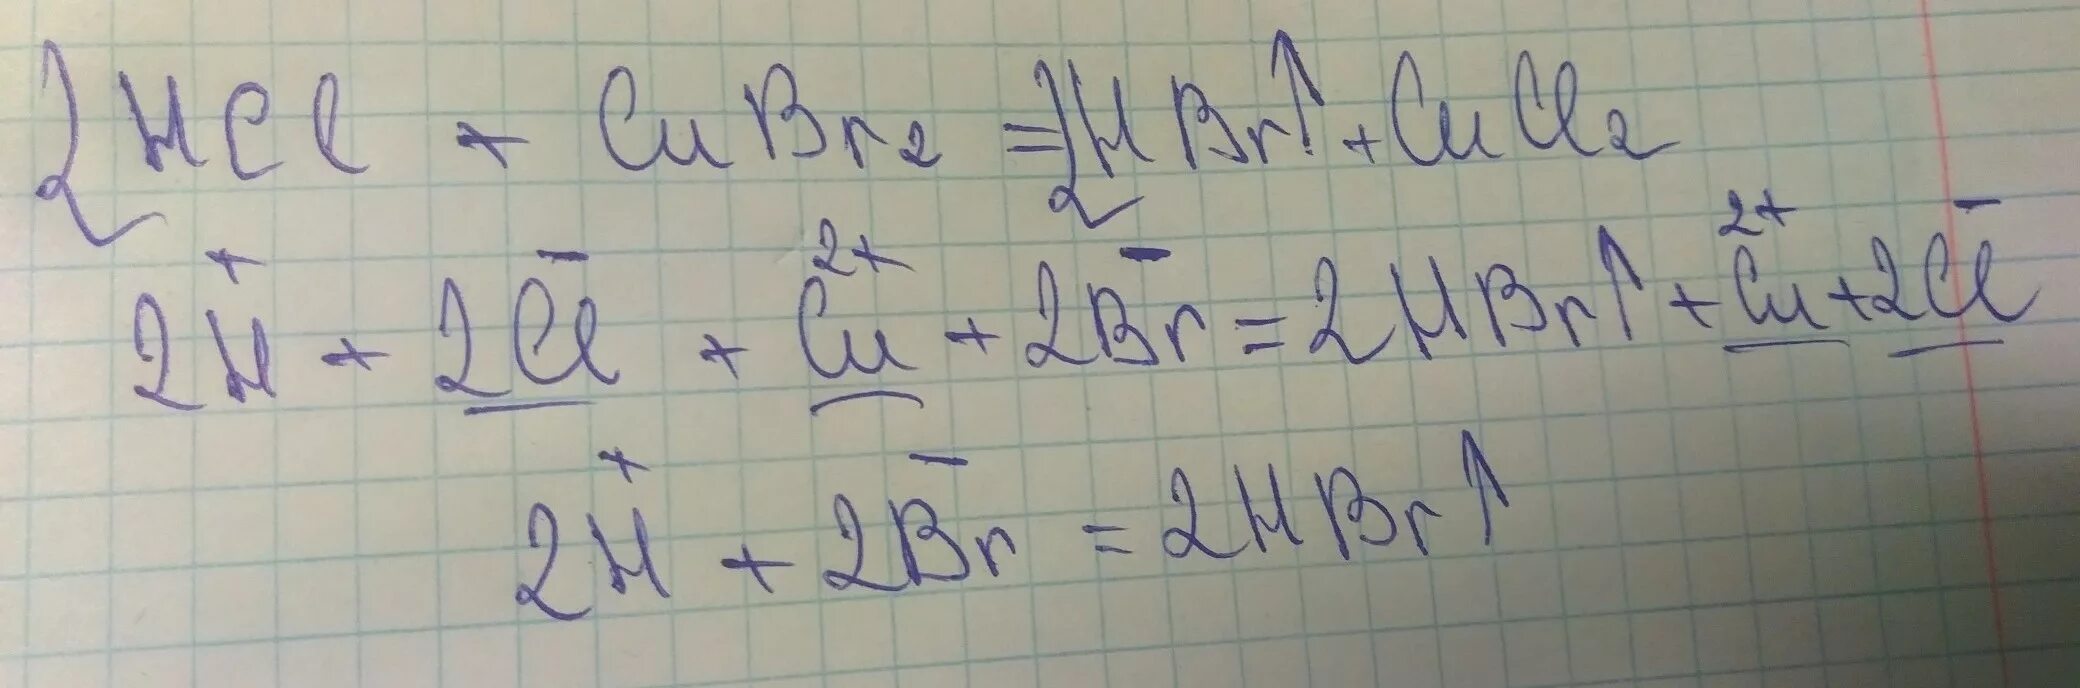 2HCl + CuBr₂ = 2HBr↑ + CuCl₂
2H⁺ + 2Cl⁻ + Cu²⁺ + 2Br⁻ = 2HBr↑ + Cu²⁺ + 2Cl⁻
2H⁺ + 2Br⁻ = 2HBr↑